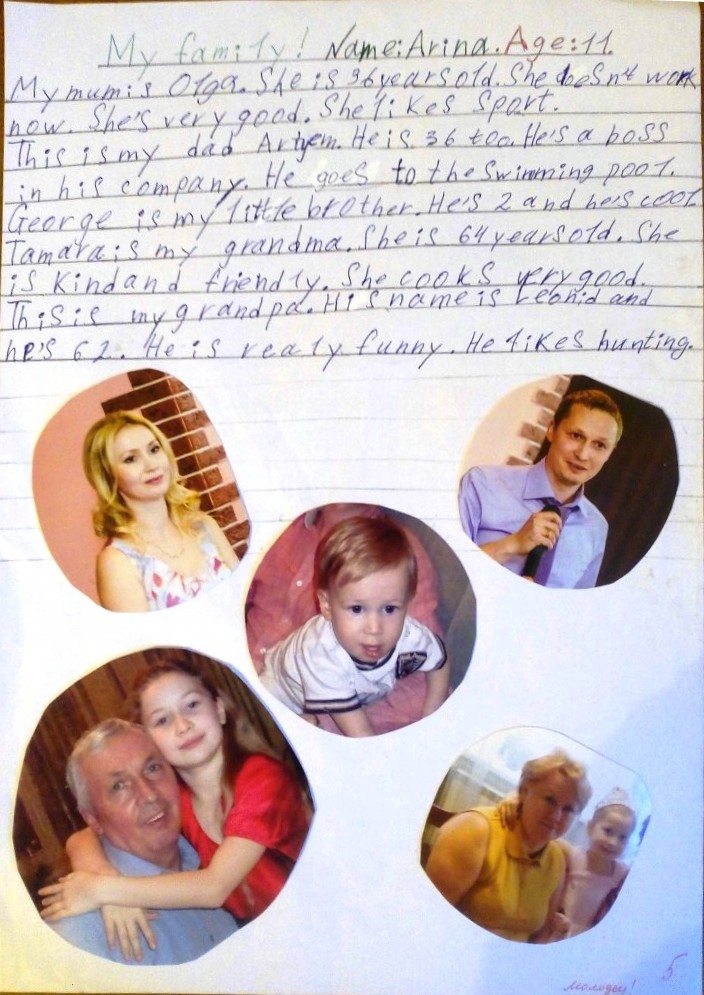 My family! Name: Arina. Age: 11.
My mum is Olga. She is 36 years old. She doesn't work
now. She's very good. She likes Sport.
This is my dad Artyem. He is 36 too. He's a boss
in his company. He goes to the swimming pool.
George is my little brother. He's 2 and he's cool.
Tamara is my grandma. She is 64 years old. She
is kind and friendly. She cooks very good.
This is my grandpa. His name is Leonid and
he's 62. He is realy funny. He likes hunting.
5
молодец!